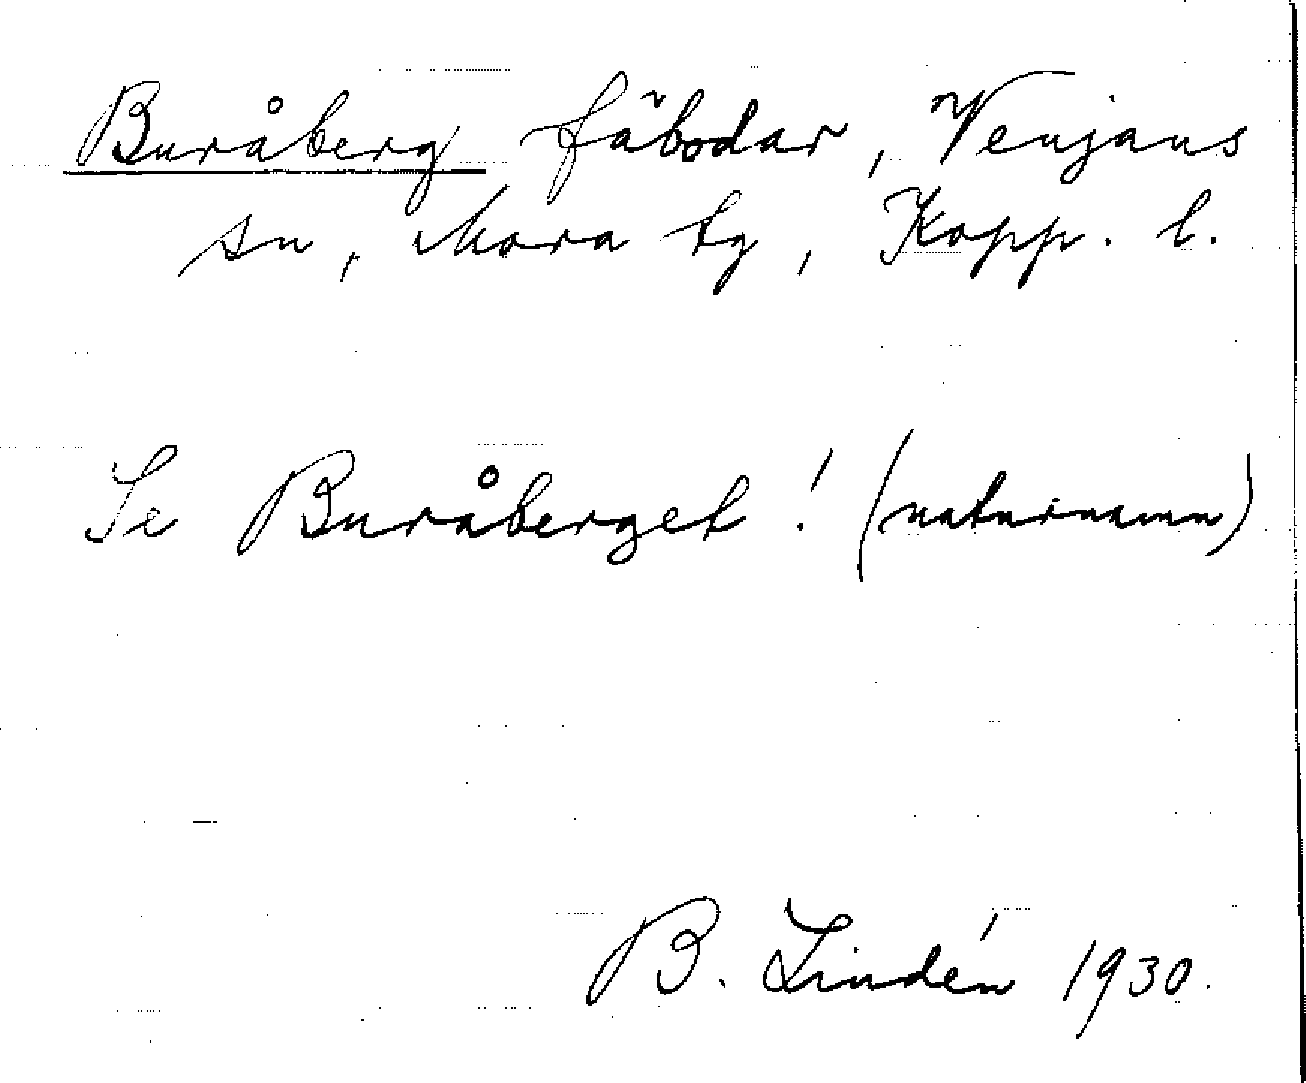 Buråberg fäbodar, Venjans
sn, Mora tg, Kopp. l.
Se Buråberget! (naturnamn)
B. Lindén 1930.